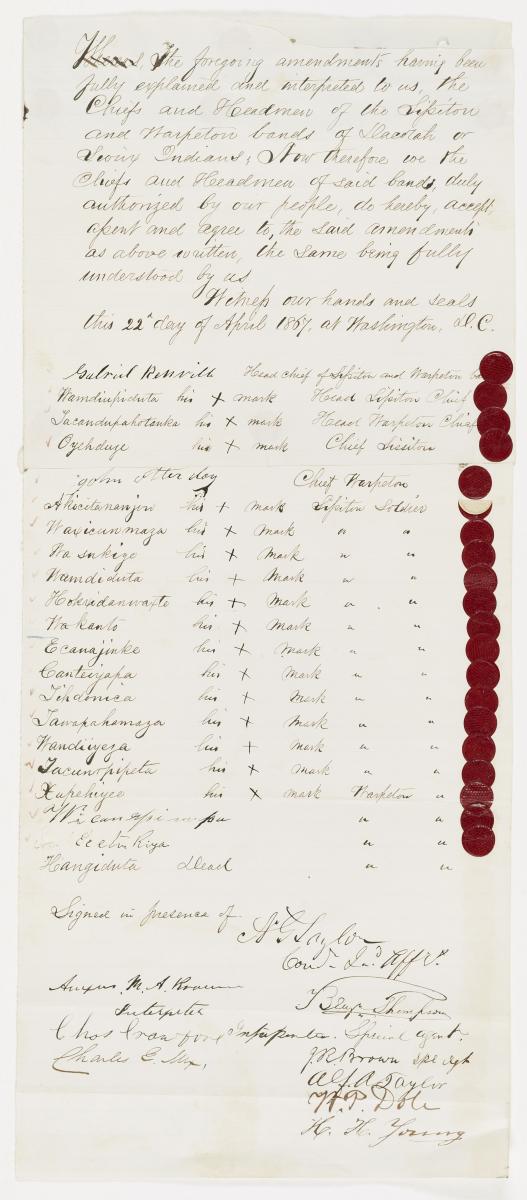 The foregoing amendments having been
fully explained and interpreted to us, the
Chiefs and Headmen of the Sissiton
and Warpeton bands of Dacotah or
Sioux Indians; Now therefore we the
Chiefs and Headmen of said bands, duly
authorized by our people, do hereby accept,
assent and agree to, the said amendments
as above written, the same being fully
understood by us
Witness our hands and seals
this 22d day of April 1867, at Washington, D.C.
Gabriel Renvill Head chief of Sissiton and Warpeton
Wamdiupiduta his x mark Head Sissiton Chief
Tacandupahotanka his x mark Head Warpeton Chief
Oyehduze his x mark Chief Sissiton
John otter day Chief Warpeton
Akicitananjin his x mark Sissiton Soldier
Waxicunmaza his x mark " "
Wasukiye his x mark " "
Wamdiduta his x mark " "
Hokxidanwaxte his x mark " "
Wakanto his x mark " "
Ecanajinke his x mark " "
Canteiyapa his x mark " "
Tihdonica his x mark " "
Tawapahamaza his x mark " "
Wandiiyeza his x mark " "
Tacunrpipeta his x mark " "
Xupehiyee his x mark Warpeton "
" "
" "
Hangiduta Dead " "
Signed in presence of
N G Taylor
Com'r Ind Aff's.
M. A. Brown
Interpreter
Benj. Thompson
Special agent.
Chas Crawford Interpreter.
Charles E. Mix,
J. R. Brown Spe Agt
Alf. A. Taylor
W. P. Dole
H. H. Young